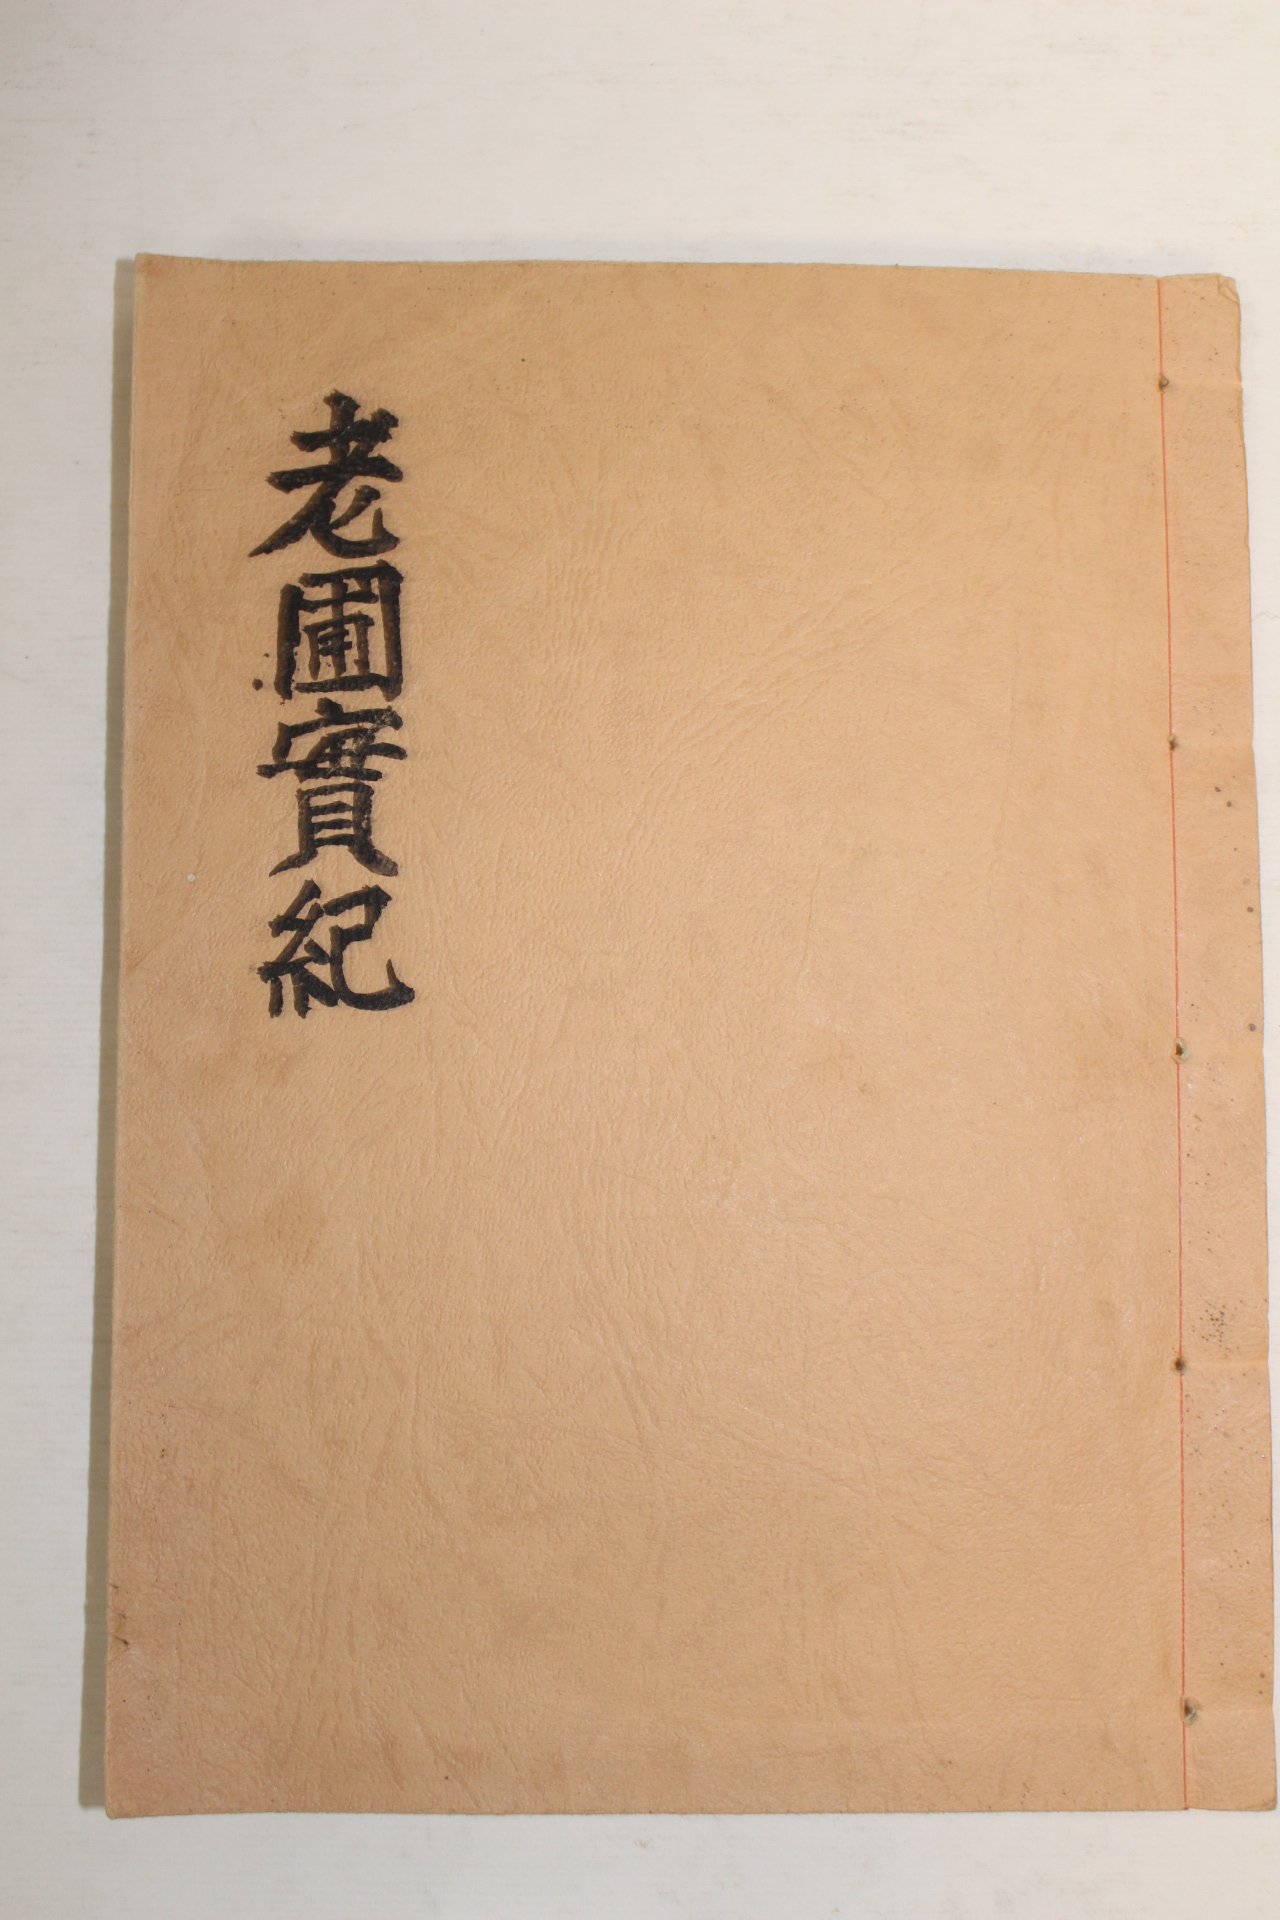 老圃實紀